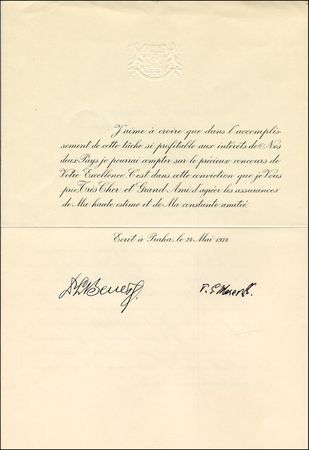 J'aime à croire que dans l'accomplis-
sement de cette tâche si profitable aux intérêts de Nos
deux Pays je pourrai compter sur le précieux concours de
Votre Excellence. C'est dans cette conviction que je Vous
prie, Très Cher et Grand Ami, d'agréer les assurances
de Ma haute estime et de Ma constante amitié.
Ecrit à Praha, le 24 Mai 1934